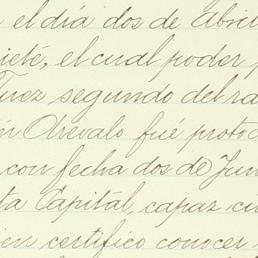 el día dos de Abril
siete, el cual poder
Juez segundo del ra
Arevalo fué protoc
con fecha dos de Jun
ta Capital, capaz ci
ien certifico conocer